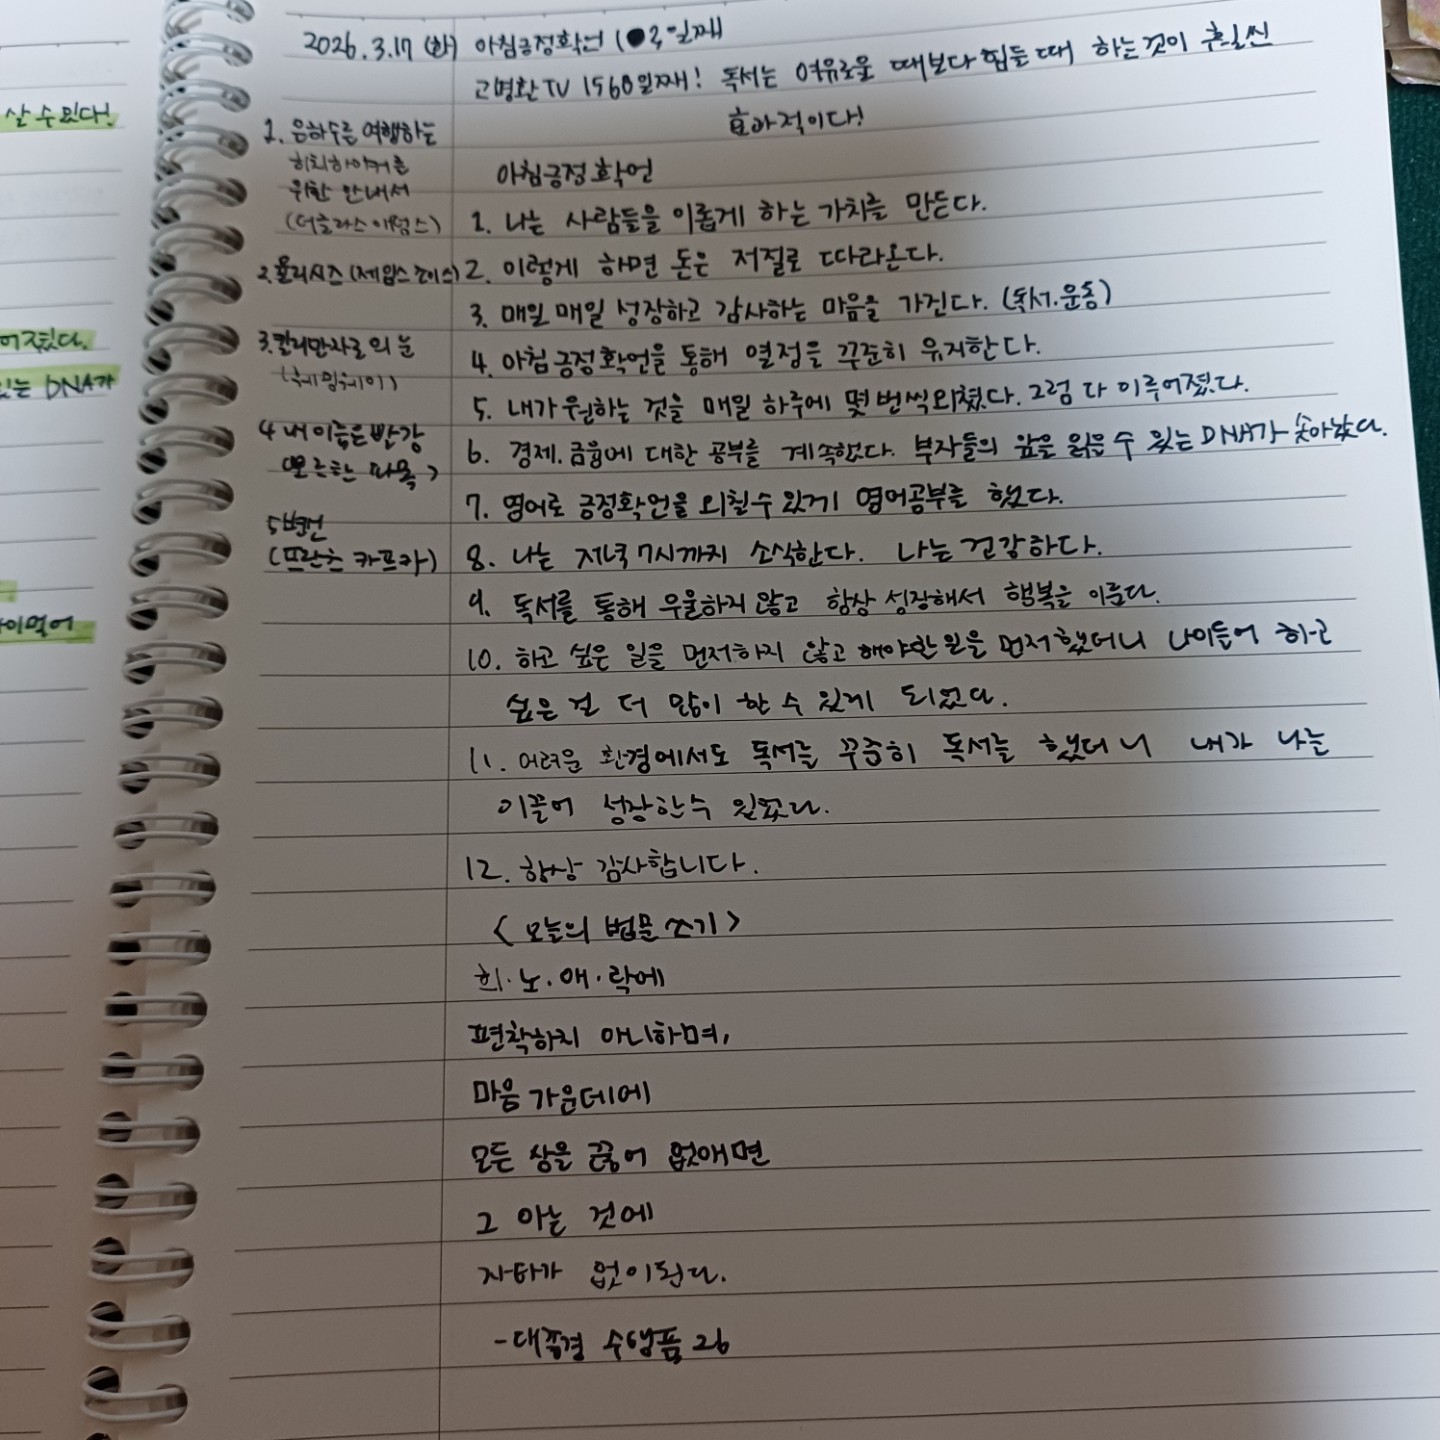 살 수 있다!
어졌다.
있는 DNA가
이먹어
2026. 3. 17 (화) 아침긍정확언 103일째
고명환TV 1560일째! 독서는 여유로울 때보다 힘들 때 하는것이 훨씬
효과적이다!
1. 은하수를 여행하는
히치하이커를
위한 안내서
(더글라스 애덤스)
2. 율리시즈 (제임스 조이스)
3. 킬리만자로의 눈
(헤밍웨이)
4 내 이름은 빨강
<오르한 파묵>
5 변신
(프란츠 카프카)
아침긍정확언
1. 나는 사람들을 이롭게 하는 가치를 만든다.
2. 이렇게 하면 돈은 저절로 따라온다.
3. 매일 매일 성장하고 감사하는 마음을 가진다. (독서.운동)
4. 아침긍정확언을 통해 열정을 꾸준히 유지한다.
5. 내가 원하는 것을 매일 하루에 몇 번씩 외쳤다. 그럼 다 이루어졌다.
6. 경제.금융에 대한 공부를 계속했다. 부자들의 앞을 읽을 수 있는 DNA가 솟아났다.
7. 영어로 긍정확언을 외칠수 있게 영어공부를 했다.
8. 나는 저녁 7시까지 소식한다. 나는 건강하다.
9. 독서를 통해 우울하지 않고 항상 성장해서 행복을 이룬다.
10. 하고 싶은 일을 먼저하지 않고 해야할 일을 먼저 했더니 나이들어 하고
싶은 걸 더 많이 할 수 있게 되었다.
11. 어려운 환경에서도 독서를 꾸준히 독서를 했더니 내가 나를
이끌어 성장할수 있었다.
12. 항상 감사합니다.
< 오늘의 법문 쓰기 >
희·노·애·락에
편착하지 아니하며,
마음 가운데에
모든 상을 끊어 없애면
그 아는 것에
자타가 없이된다.
- 대종경 수행품 26